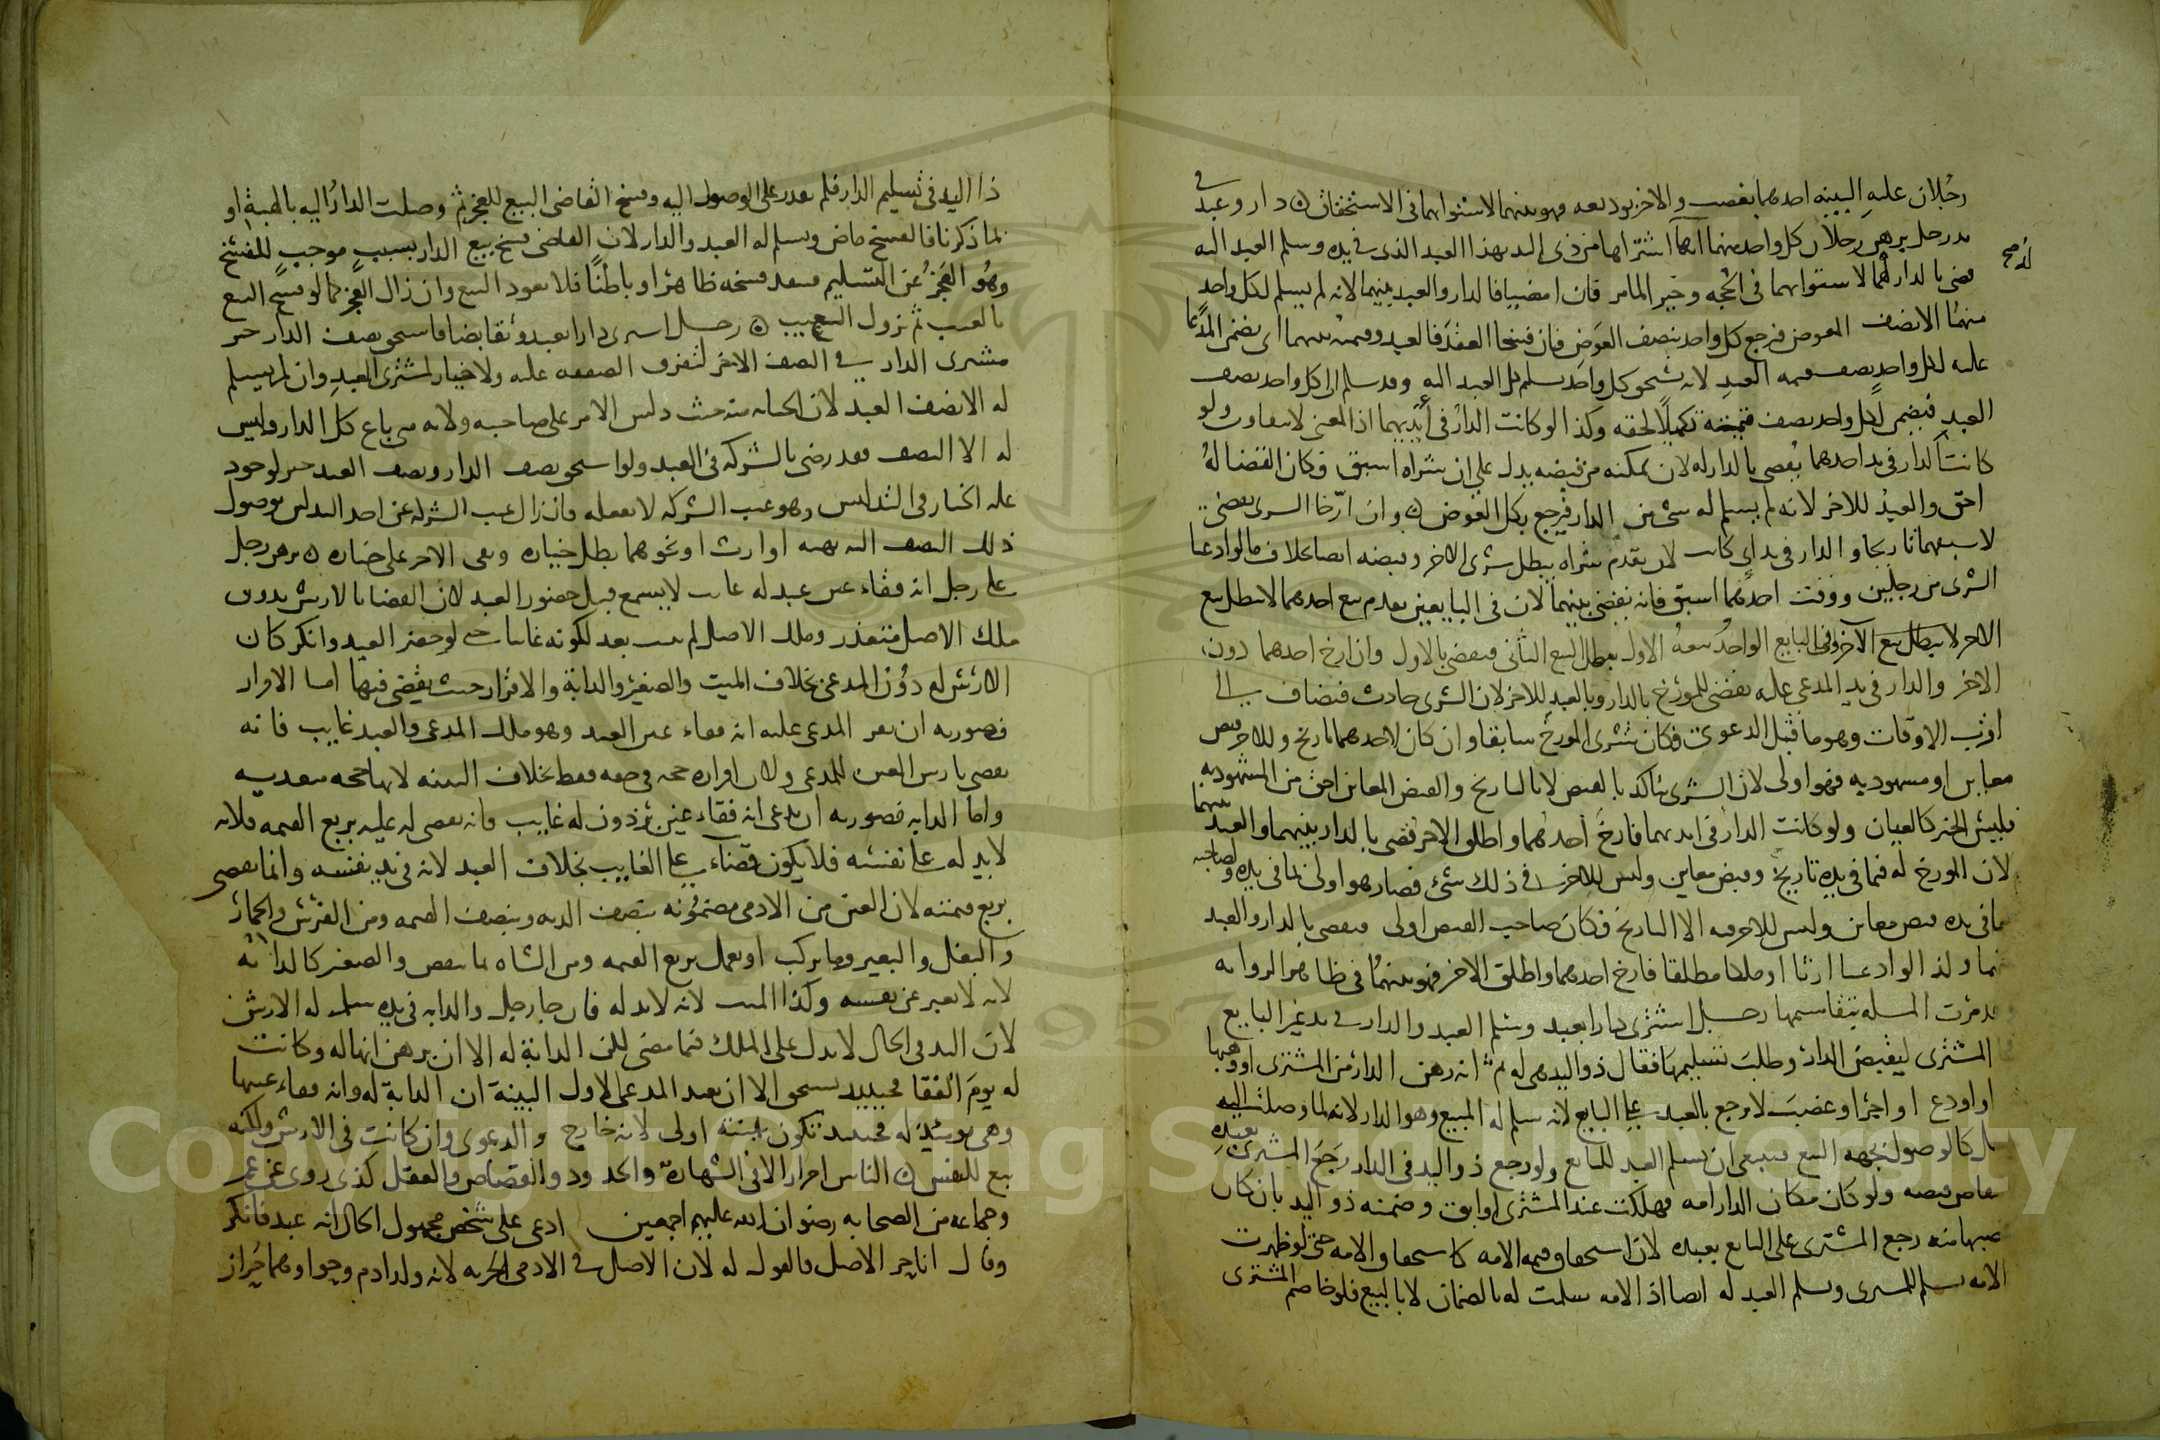 رجلان عليه البينه احدهما بغصب والاخر بوديعه فهو بينهما لاستوائهما في الاستحقاق دار وعبد في
يد رجل برهن رجلان كل واحد منهما انه اشتراها من ذي اليد بهذا العبد الذي في يده وسلم العبد اليه
قضى بالدار لهما لاستوائهما في الحجه وخير لما مر فان امضيا فالدار والعبد بينهما لانه لم يسلم لكل واحد
منهما الا نصف العوض فرجع كل واحد بنصف العوض فان فسخا العقد فالعبد وقيمته بينهما اي يضمن المدعا
عليه لكل واحد نصف قيمه العبد لانه يستحق كل واحد تسلم كل العبد اليه وقد سلم الى كل واحد نصف
العبد فيضمن لكل واحد نصف قيمته تكميلا لحقه وكذا لو كانت الدار في ايديهما اذ المعنى لا يتفاوت ولو
كانت الدار في يد احدهما يقضى بالدار له لان تمكنه من قبضه يدل على ان شراه اسبق فكان القضا له
احق والعبد للاخر لانه لم يسلم له شي من الدار فيرجع بكل العوض وان ارخا الشرى يقضى
لاسبقهما تاريخا والدار في يد اي كانت لان تقدم شراه يبطل شرى الاخر وقبضه ايضا بخلاف ما لو ادعيا
الشرى من رجلين ووقت احدهما اسبق فانه يقضى بينهما لان في البايعين تقدم بيع احدهما لا يبطل بيع
الاخر لا يبطل بيع الاخر وفي البايع الواحد بيعه الاول يبطل البيع الثاني فيقضى بالاول وان ارخ احدهما دون
الاخر والدار في يد المدعى عليه يقضى للمورخ بالدار وبالعبد للاخر لان الشرى حادث فيضاف الى
اقرب الاوقات وهو ما قبل الدعوى فكان شرى المورخ سابقا وان كان لاحدهما تاريخ وللاخر قبض
معاين او مشهود به فهو اولى لان الشرى يتاكد بالقبض لا بالتاريخ والقبض المعاين احق من المشهود به
فليس الخبر كالعيان ولو كانت الدار في ايديهما فارخ احدهما واطلق الاخر قضى بالدار بينهما والعبد بينهما
لان المورخ له فيما في يده تاريخ وقبض معاين وليس للاخر في ذلك شي فصار هو اولى بما في يده ولصاحبه
بما في يده قبض معاين وليس للاخر فيه الا التاريخ فكان صاحب القبض اولى فيقضى بالدار والعبد
بينهما وكذا لو ادعيا ارثا او ملكا مطلقا فارخ احدهما واطلق الاخر فهو بينهما في ظاهر الروايه
وقد مرت المسله بتقاسيمها رجل اشترى دارا بعبد وسلم العبد والدار في يد غير البايع
المشترى ليقبض الدار وطلب تسليمها فقال ذو اليد هي له ثم انه رهن الدار من المشترى او وهبها
او اودع او اجر او غصب لا يرجع بالعبد على البايع لانه سلم له المبيع وهو الدار لانه لما وصلت اليه
بل كالوصول بجهه البيع فينبغي ان يسلم العبد للبايع ولو رجع ذو اليد في الدار رجع المشترى بعبده
قبضه ولو كان مكان الدار امه فهلكت عند المشترى او ابق وضمنه ذو اليد بان كان
غصبها منه رجع المشترى على البايع بعبده لان استحقاق قيمه الامه كاستحقاق الامه حتى لو ظهرت
الامه تسلم للمشترى وسلم العبد له ايضا اذ الامه سلمت له بالضمان لا بالبيع فلو خاصم المشترى
ذا اليد في تسليم الدار فلم يقدر على الوصول اليه وفسخ القاضي البيع للعجز ثم وصلت الدار اليه بالهبة او
بما ذكرنا فالفسخ ماض وسلم له العبد والدار لان القاضي فسخ بيع الدار بسبب موجب للفسخ
وهو العجز عن التسليم فنفذ فسخه ظاهرا وباطنا فلا يعود البيع وان زال العجز كما لو فسخ البيع
بالعيب ثم يزول العيب رجل اشترى دارا بعبد وتقابضا فاستحق نصف الدار خير
مشترى الدار في النصف الاخر لتفرق الصفقه عليه ولا خيار لمشترى العبد وان لم يسلم
له الا نصف العبد لان الجنايه منه حيث دلس الامر على صاحبه ولانه متى باع كل الدار وليس
له الا النصف فقد رضي بالشركه في العبد ولو استحق نصف الدار ونصف العبد خير لوجود
عله الخيار في التدليس وهو عيب الشركه لا بفعله فان زال عيب الشركه عن احد البدلين بوصول
ذلك النصف اليه بهبه او ارث او نحوهما بطل خياره وبقى الاخر على خياره برهن رجل
على رجل انه فقاء عين عبد له غايب لا يسمع قبل حضور العبد لان القضا بالارش بدون
ملك الاصل متعذر وملك الاصل لم يثبت بعد لكونه غايبا حتى لو حضر العبد وانكر كان
الارش له دون المدعي بخلاف الميت والصغير والدابة والاقرار حيث يقضى فيها اما الاقرار
فصورته ان يقر المدعى عليه انه فقاء عين العبد وهو ملك المدعي والعبد غايب فانه
يقضى بارش العين للمدعي لان اقراره حجه في حقه فقط بخلاف البينه لانها حجه متعديه
واما الدابه فصورته ان يدعي انه فقاء عين برذون له غايب فانه يقضى له عليه بربع القيمه فلانه
لا يد له على نفسه فلا يكون قضاء على الغايب بخلاف العبد لانه في يد نفسه وانما يقضى
بربع قيمته لان العين من الادمي مضمونه بنصف الديه وبنصف القيمه ومن الفرس والحمار
والبغل والبعير وما يركب او يعمل بربع القيمه ومن الشاه بما ينقص والصغير كالدابه
لانه لا يعبر عن نفسه وكذا الميت لانه لا يد له فان جا رجل والدابه في يده سلم له الارش
لان اليد في الحال لا يدل على الملك فيما مضى لكن الدابة له الا ان يبرهن انها له وكانت
له يوم الفقا فحينئذ يستحق الا ان يعيد المدعي الاول البينة ان الدابة له وانه فقاء عينها
وهي يومئذ له فحينئذ تكون بينته اولى لانه خارج والدعوى وان كانت في الارش ولكنه
تبع للنفس الناس احرار الا في الشهادة والحدود والقصاص والعقل كذى روى عن عمر
وجماعه من الصحابه رضوان الله عليهم اجمعين ادعى على شخص مجهول الحال انه عبد فانكر
وقال انا حر الاصل فالقول له لان الاصل في الادمي الحريه لانه ولد ادم وحوا وهما حران